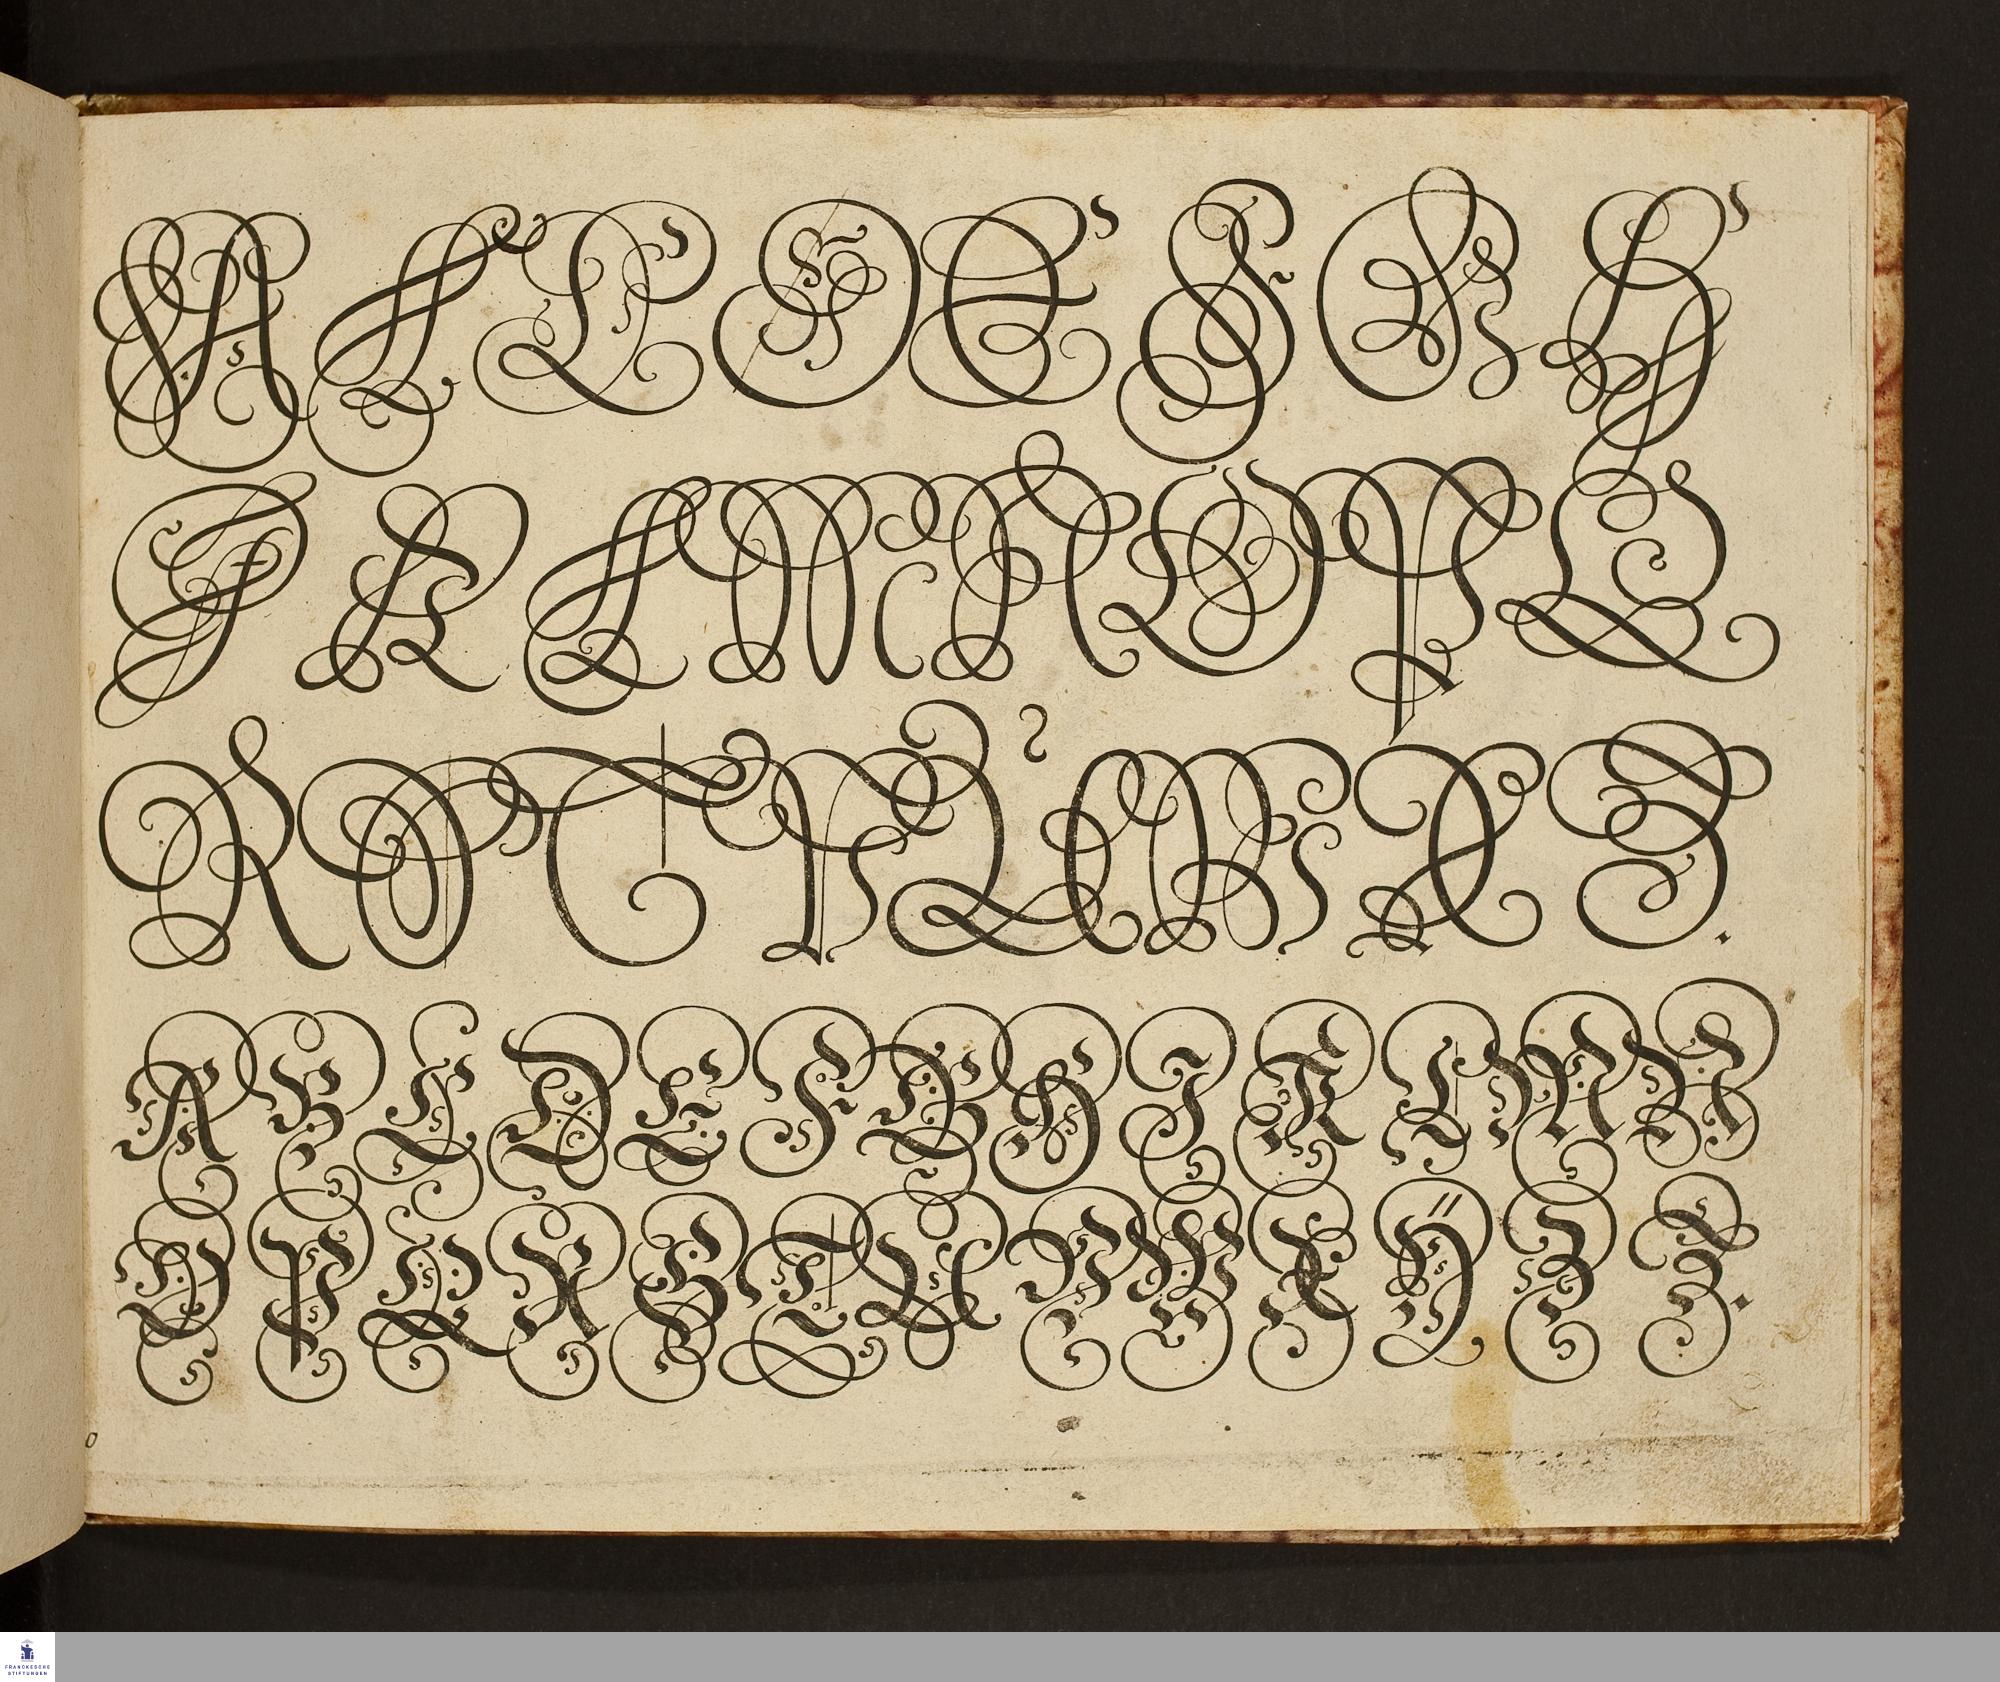 A B C D E F G H
J K L M N O P Q
R S T V U W X Z.
A B C D E F G H I K L M N
O P Q R S T U V W X Ÿ Z Z.
FRANCKESCHE
STIFTUNGEN